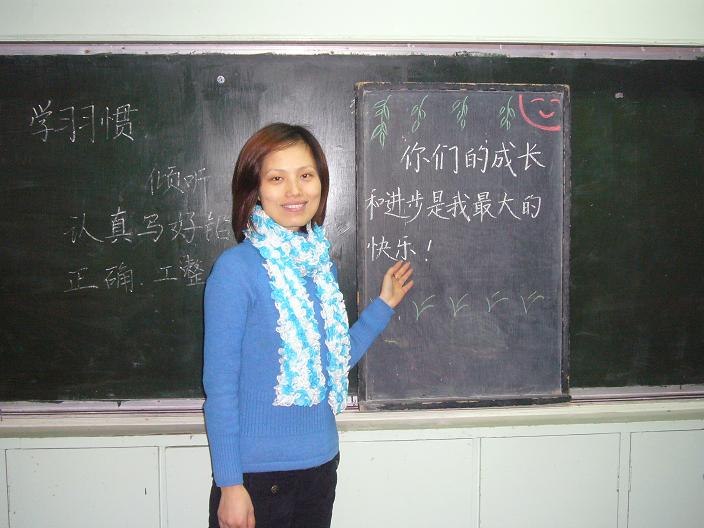 学习习惯
倾听
认真写好铅
正确.工整
你们的成长
和进步是我最大的
快乐!